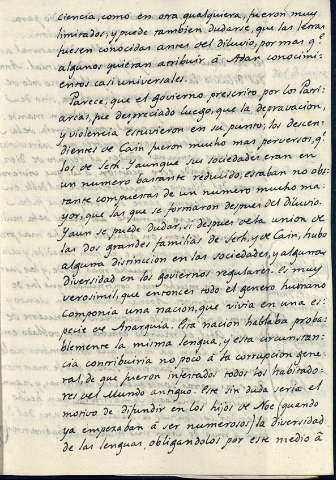 ciencia, como en otra qualquiera, fueron muy
limitados, y puede tambien dudarse, que las letras
fuesen conocidas antes del diluvio, por mas q.e
algunos quieran atribuir à Adan conocimi-
entos casi universales.
Parece, que el govierno prescrito por los Patri-
arcas, fue depreciado luego, que la depravacion,
y violencia estuvieron en su punto; los descen-
dientes de Cain fueron mucho mas perversos, q.e
los de Seth. Y aunque sus sociedades eran en
un numero bastante reducido, estaban no obs-
tante compuestas de un numero mucho ma-
yor, que las que se formaron despues del diluvio.
Y aun se puede dudar, si despues de la union de
las dos grandes familias de Seth, y de Cain, hubo
alguna distincion en las sociedades, y alguna
diversidad en los goviernos regulares. Es muy
verosimil, que entonces todo el genero humano
componia una nacion, que vivia en una es-
pecie de Anarquia. Esta nacion hablaba proba-
blemente la misma lengua; y esta circunstan-
cia contribuiria no poco à la corrupcion gene-
ral, de que fueron infestados todos los habitado-
res del Mundo antiguo. Este sin duda seria el
motivo de difundir en los hijos de Noe (quando
ya empezaban à ser numerosos) la diversidad
de las lenguas, obligandolos por este medio à